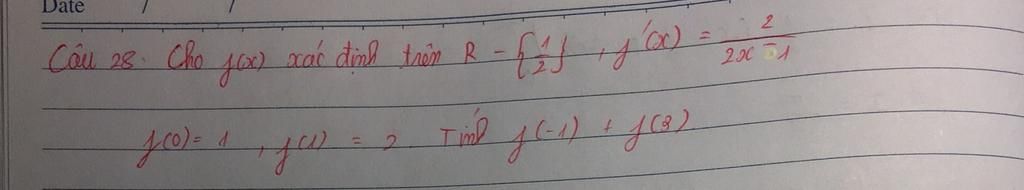 Date / /
Câu 28. Cho f(x) xác định trên R - {1/2}, f'(x) = 2/(2x - 1)
f(0) = 1, f(1) = 2. Tính f(-1) + f(3)